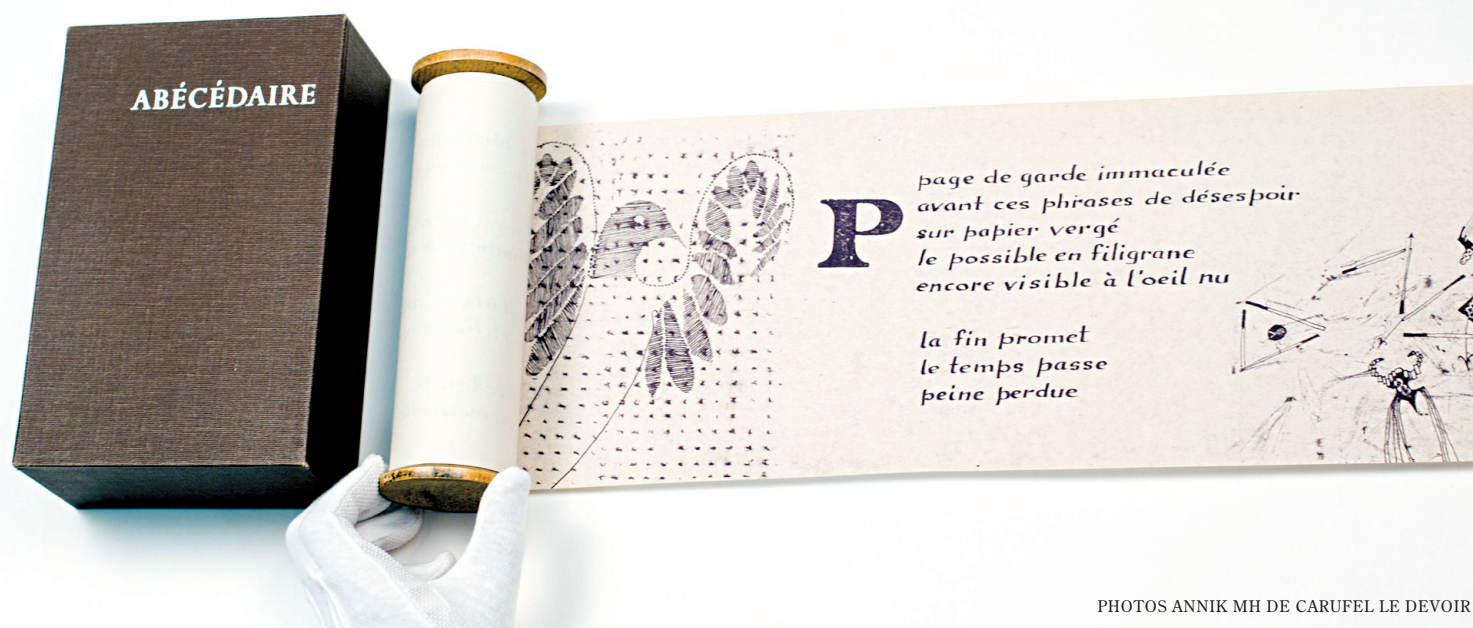 ABÉCÉDAIRE
P
page de garde immaculée
avant ces phrases de désespoir
sur papier vergé
le possible en filigrane
encore visible à l'oeil nu
la fin promet
le temps passe
peine perdue
PHOTOS ANNIK MH DE CARUFEL LE DEVOIR